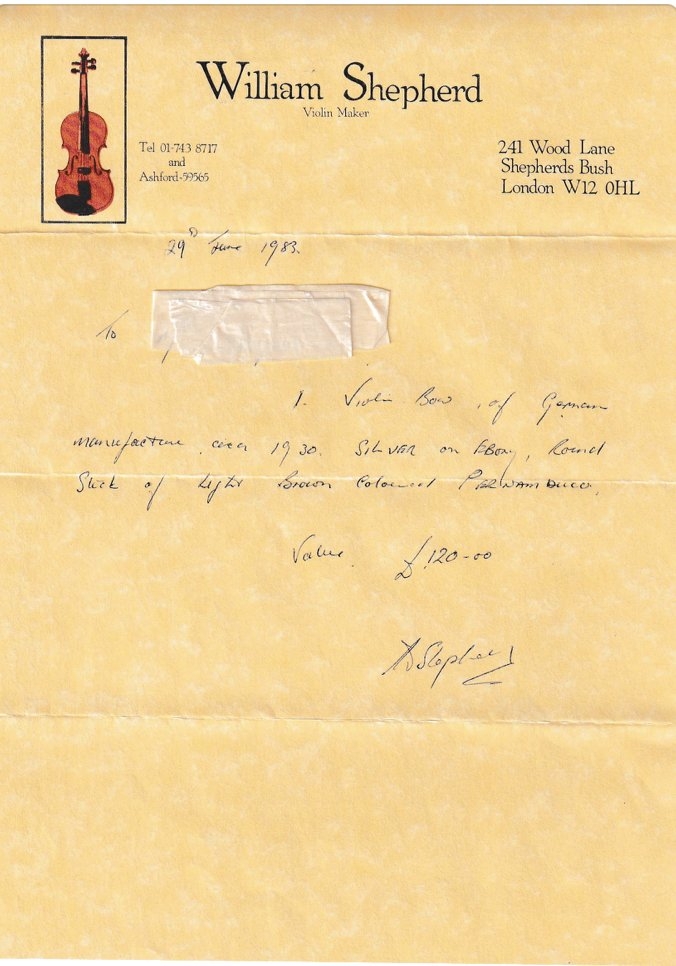 William Shepherd
Violin Maker
Tel 01-743 8717
and
Ashford-59565
241 Wood Lane
Shepherds Bush
London W12 0HL
29th June 1983.
To
1. Violin Bow, of German
manufacture circa 1930. Silver on Ebony, Round
Stick of Light Brown Coloured PERNAMBUCO,
Value. £120-00
Shepherd